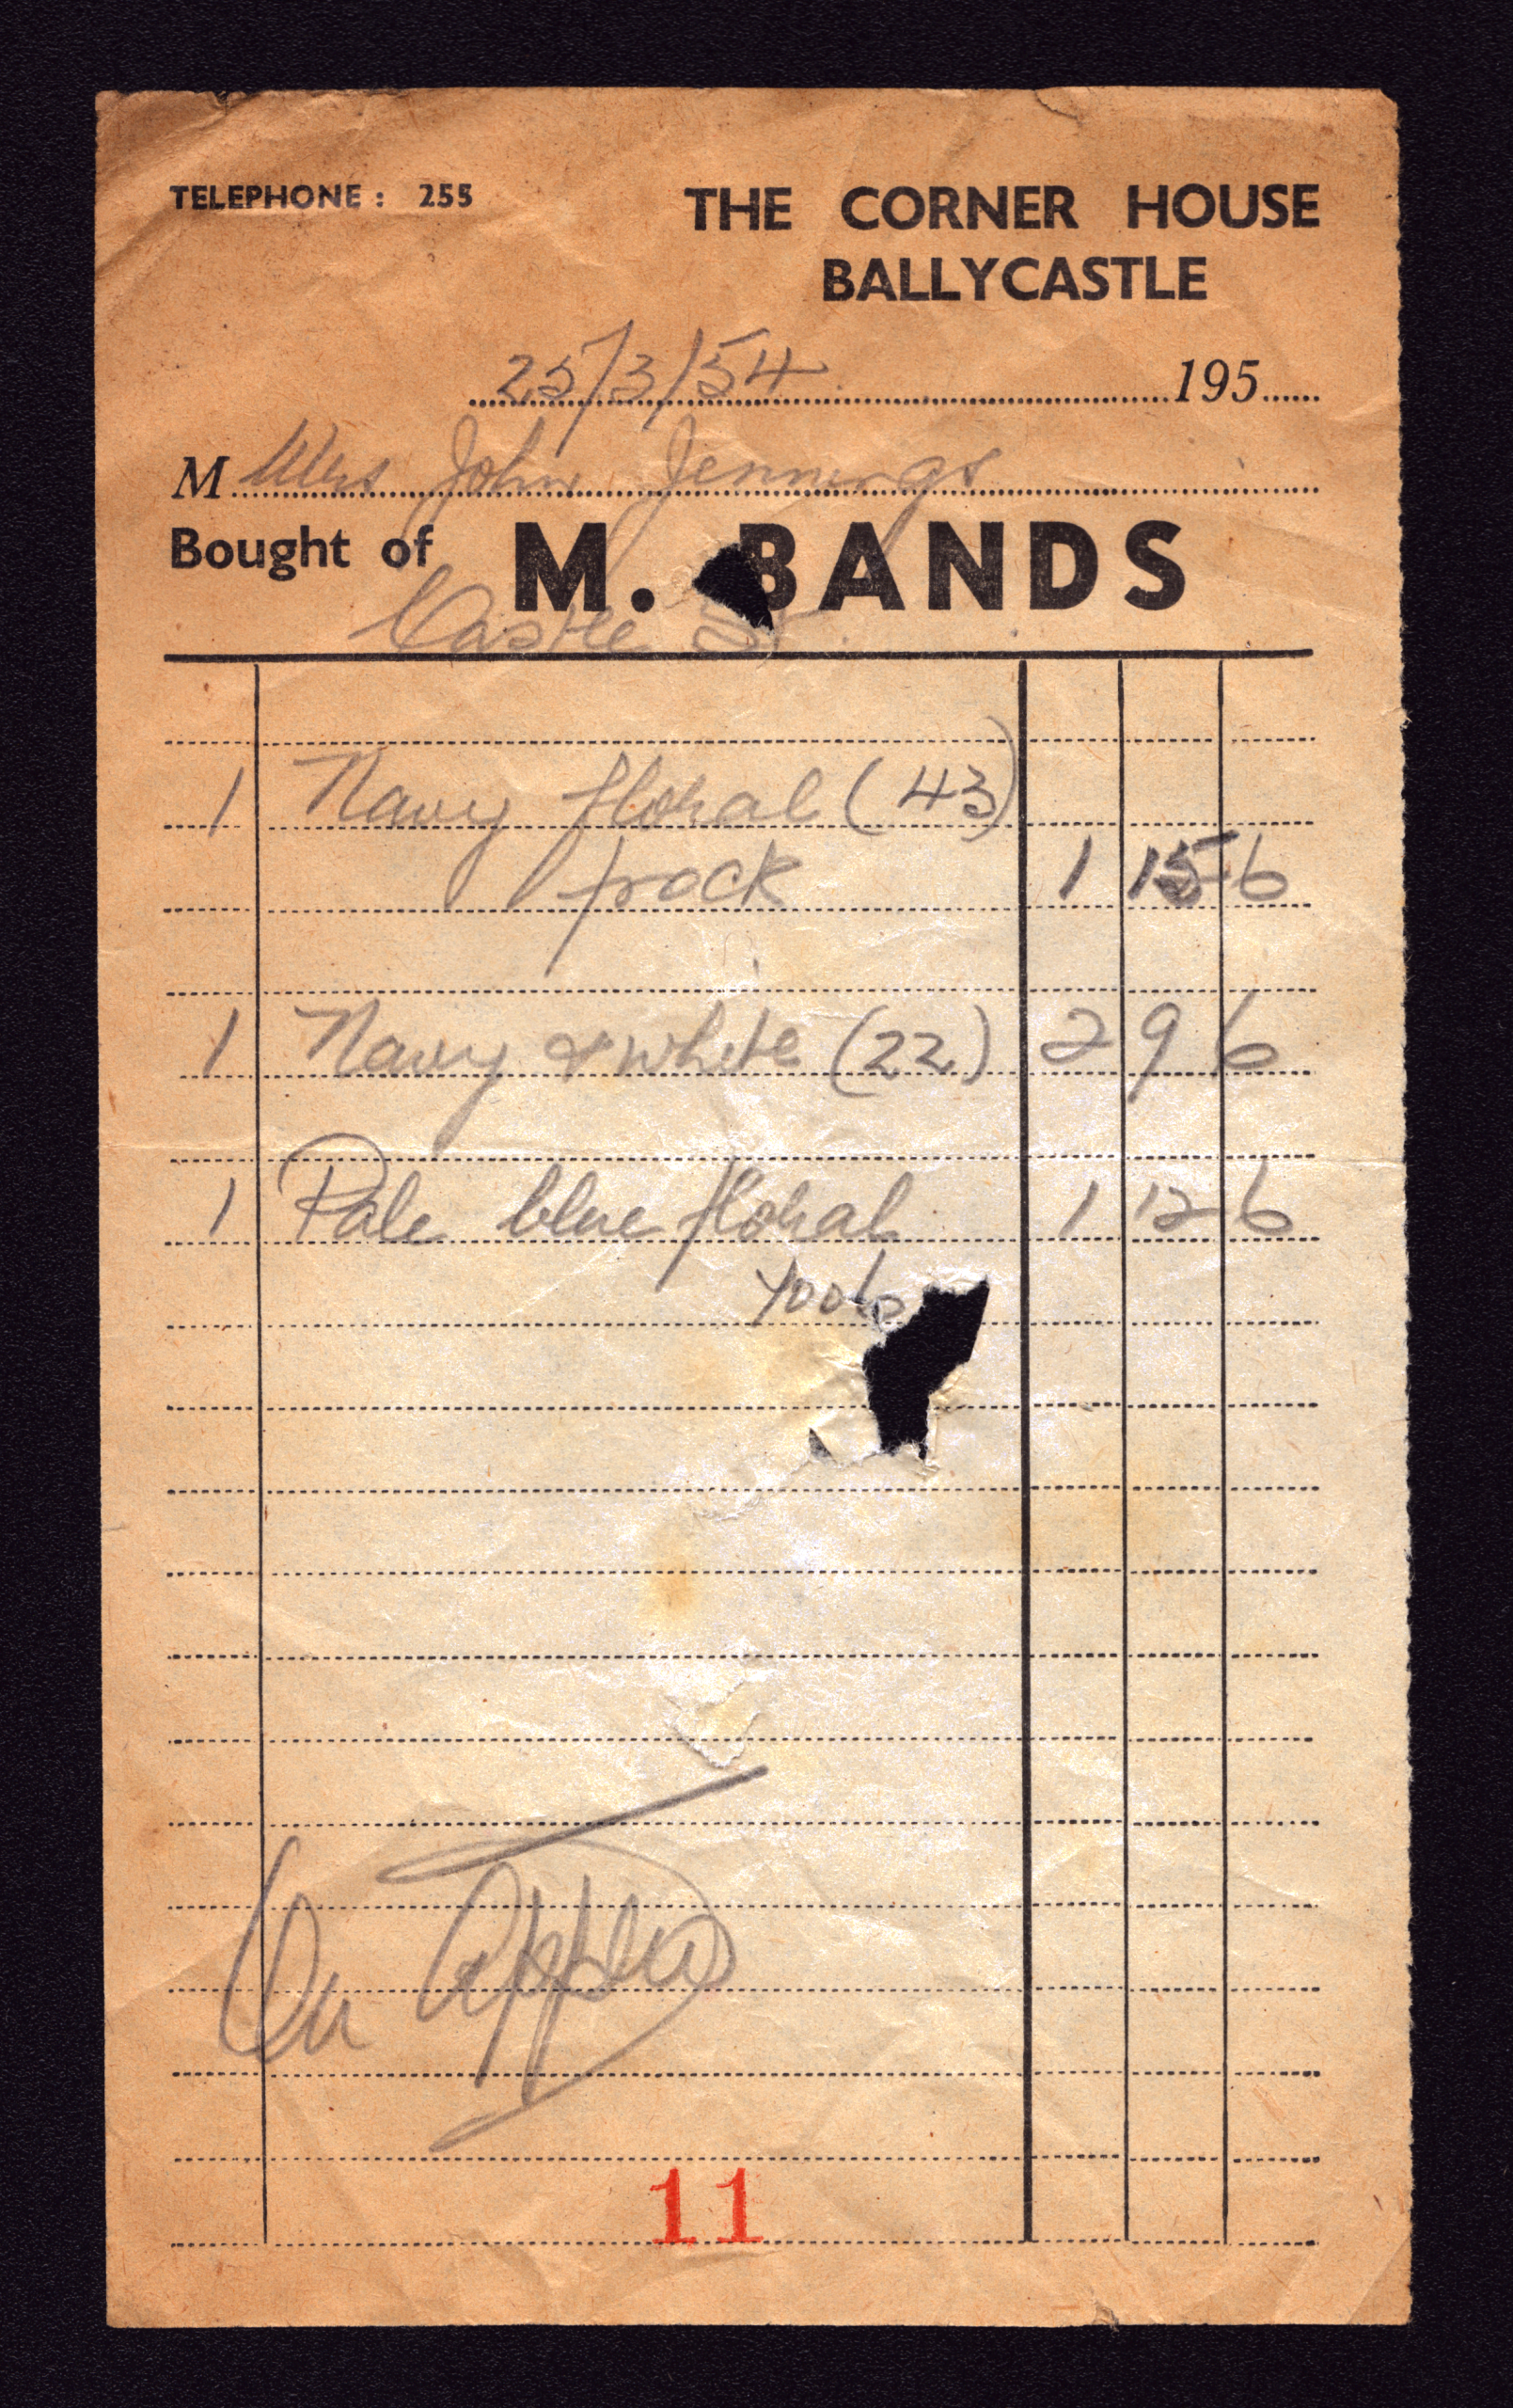 TELEPHONE : 255
THE CORNER HOUSE
BALLYCASTLE
25/3/54 195
M Mrs John Jennings
Bought of M. BANDS
Castle St.
1 Navy floral (43)
frock 1 15 6
1 Navy & white (22) 2 9 6
1 Pale blue floral 1 12 6
On Appro
11